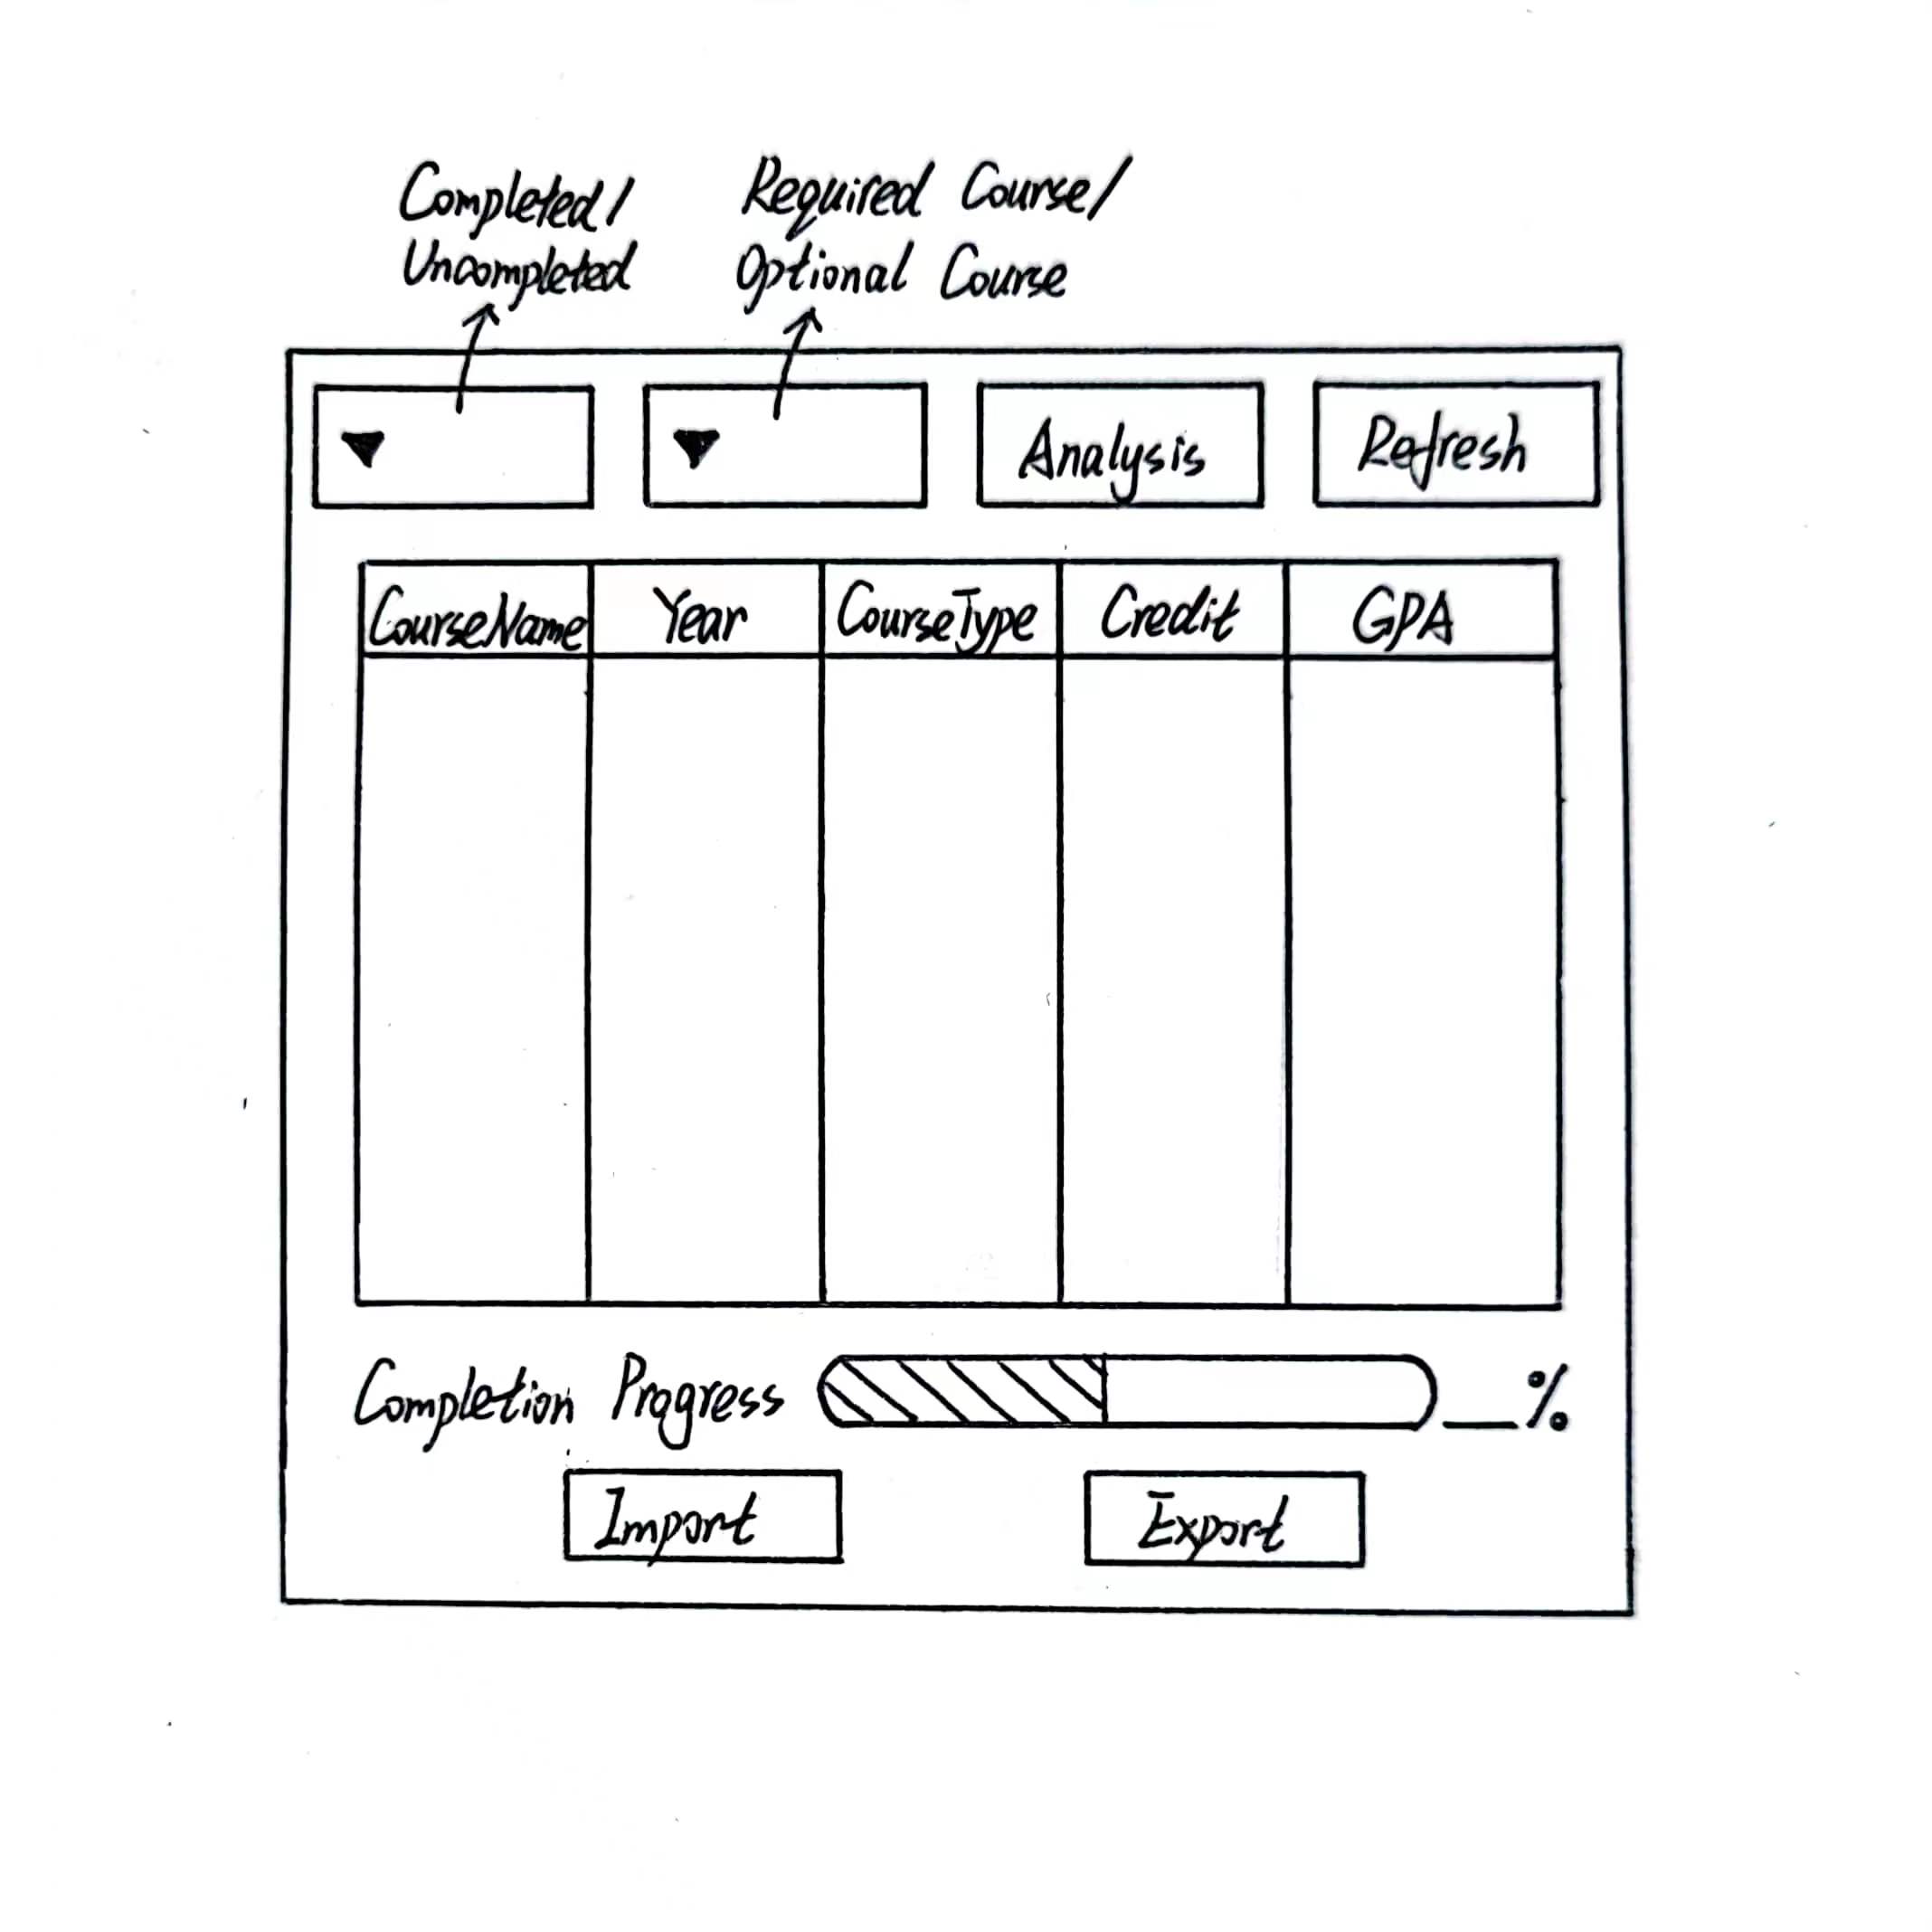 Completed/
Uncompleted
Required Course/
Optional Course
Analysis
Refresh
CourseName
Year
CourseType
Credit
GPA
Completion Progress
__%
Import
Export